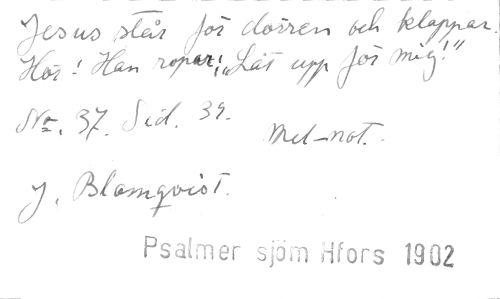 Jesus står för dörren och klappar.
Hör! Han ropar: „Låt upp för mig!"
No. 37. Sid. 39.
Mel-not.
J. Blomqvist.
Psalmer sjöm Hfors 1902